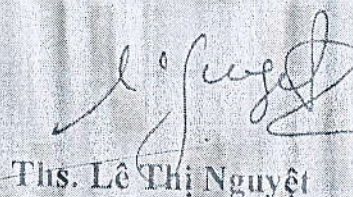 Ths. Lê Thị Nguyệt